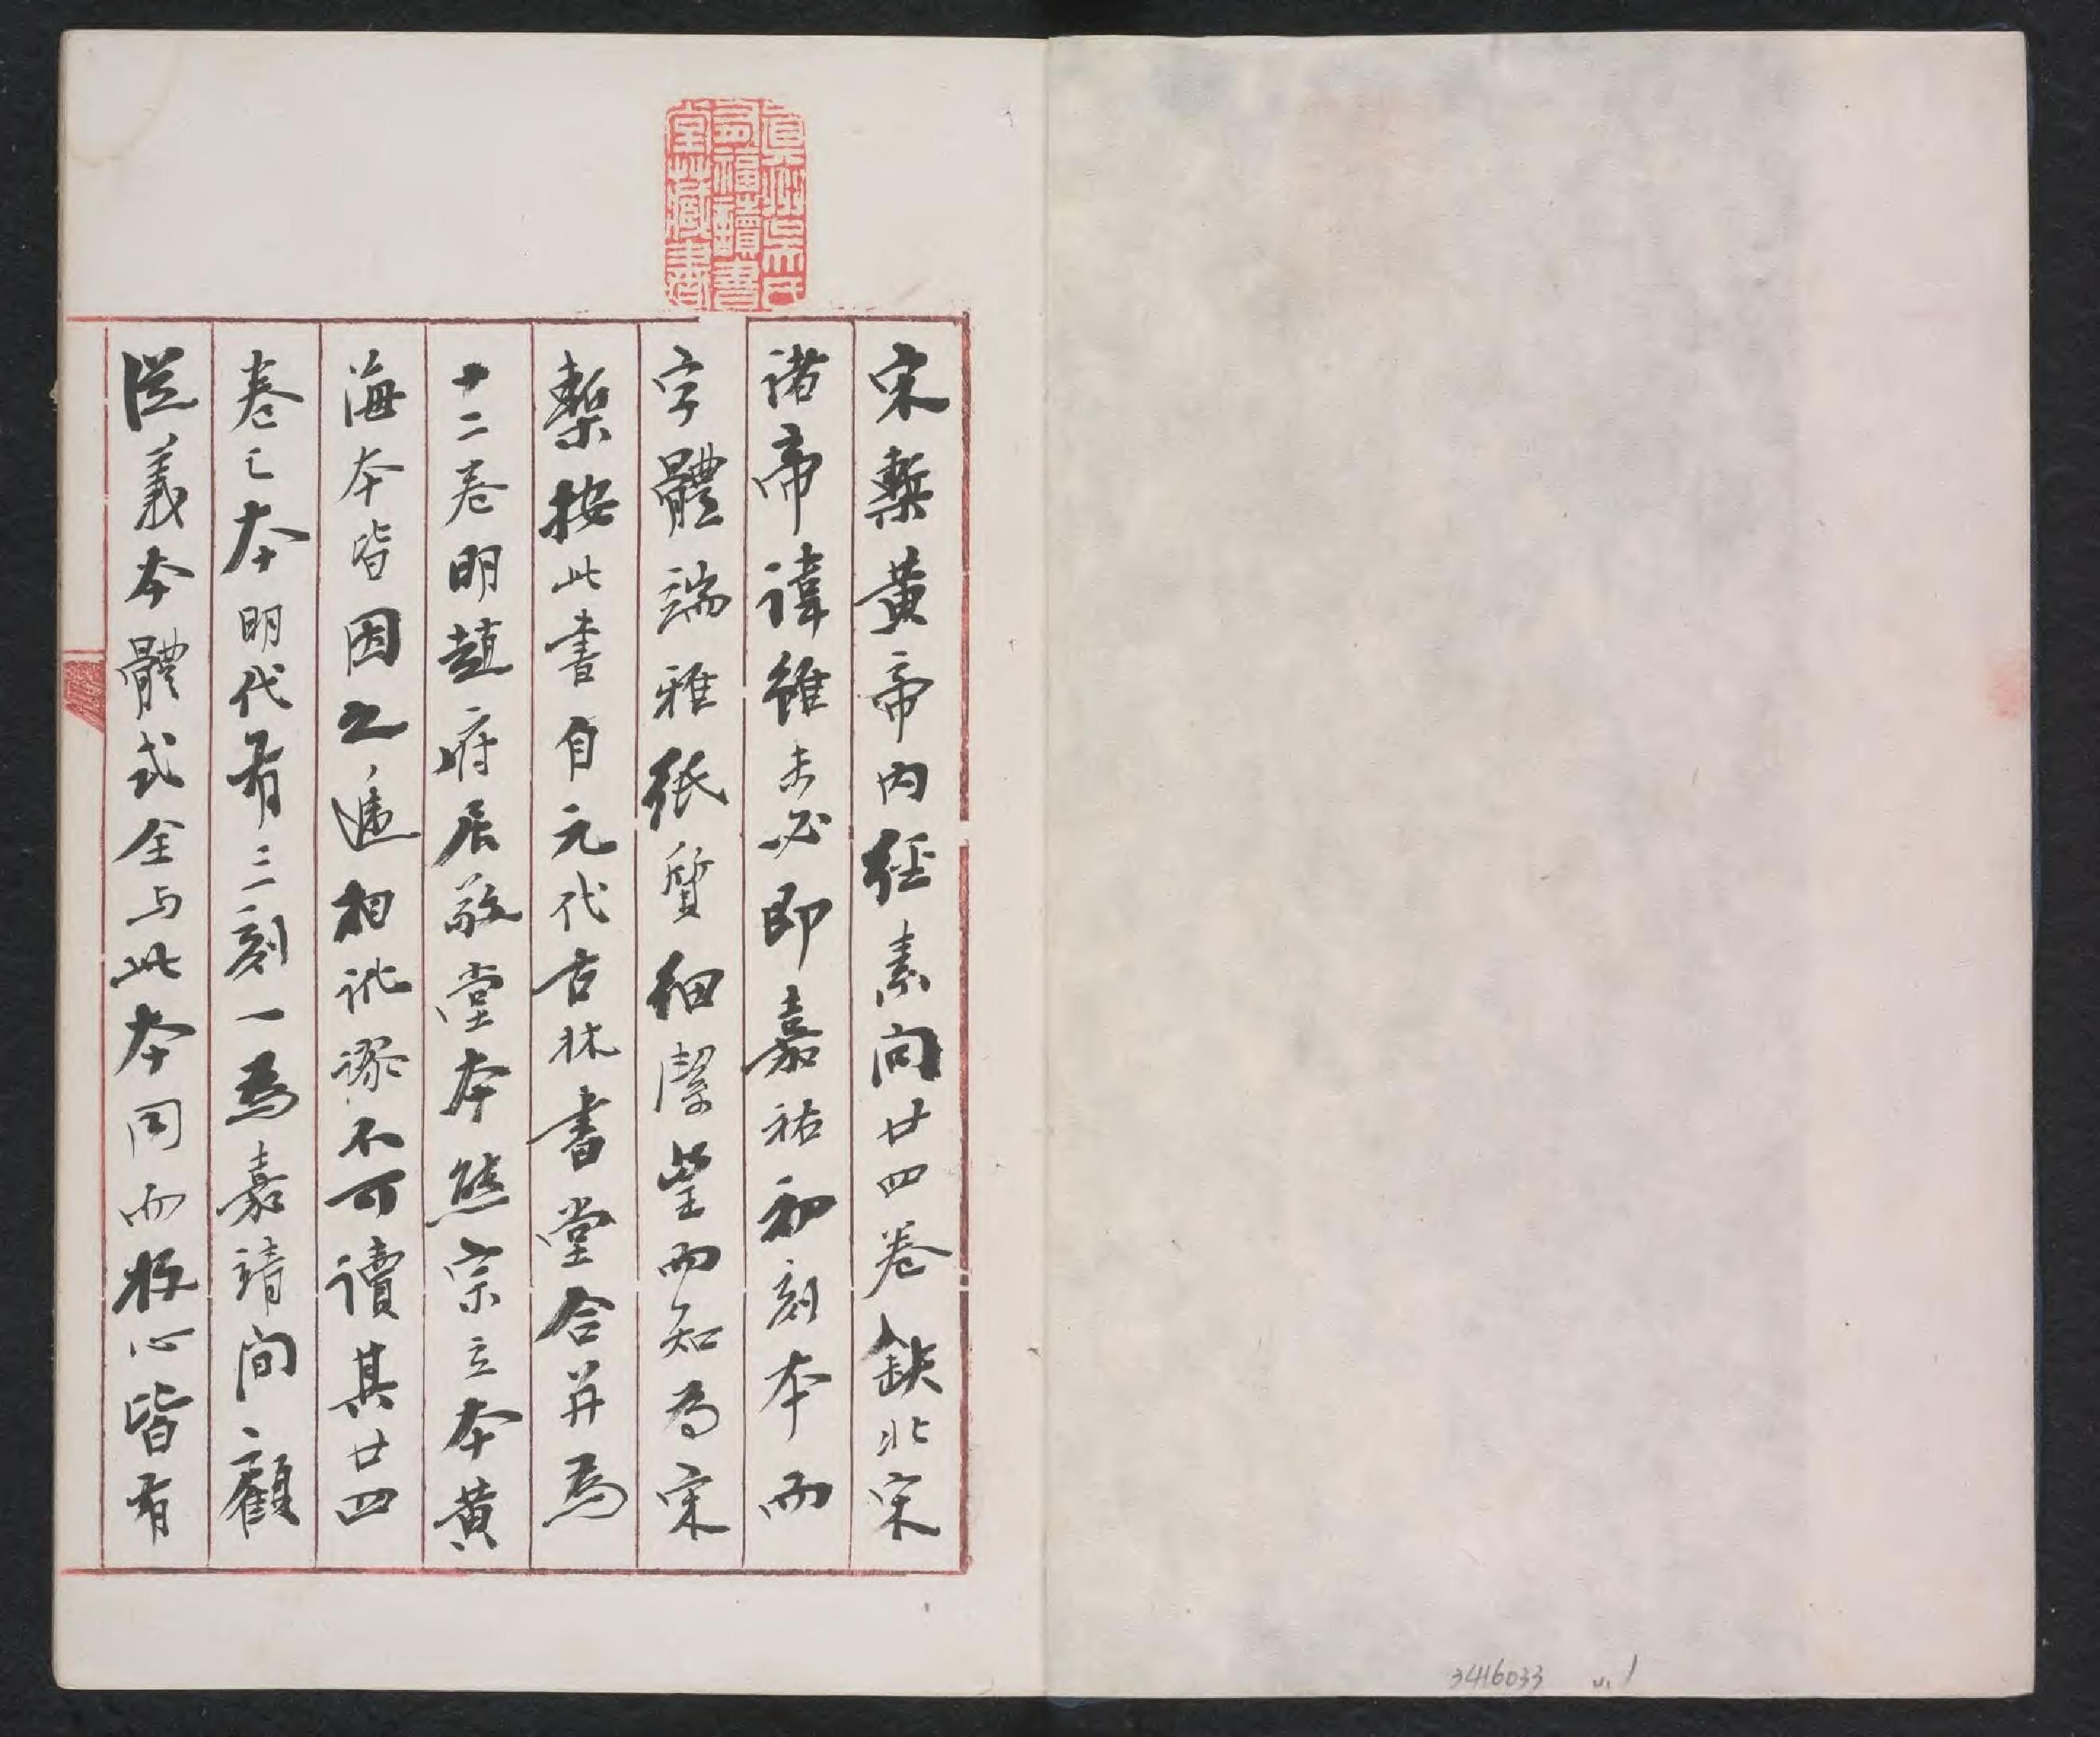 真州吳氏
有福讀書
堂藏書
宋槧黃帝內經素问廿四卷缺北宋
诸帝諱雖未必即嘉祐初刻本而
字體端雅紙質细潔望而知为宋
槧按此書自元代古林書堂合并為
十二卷明趙府居敬堂本熊宗立本黄
海本皆因之遞相訛謬不可讀其廿四
卷之本明代有二刻一為嘉靖间顧
從義本體式全与此本同而板心皆有
3416033 v.1